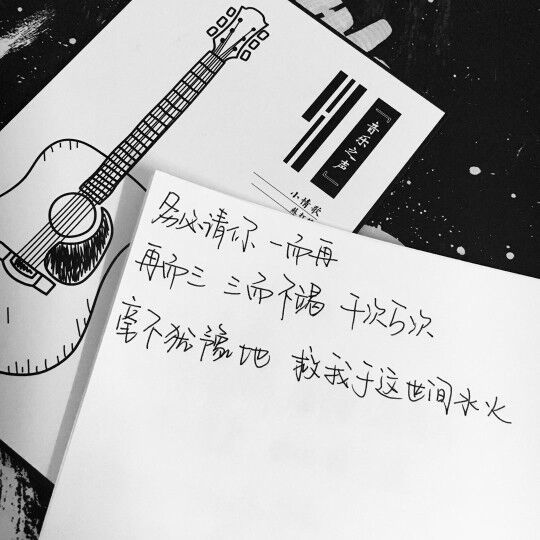 『音乐之声』
小情歌
务必请你 一而再
再而三 三而不竭 千次万次
毫不犹豫地 救我于这世间水火